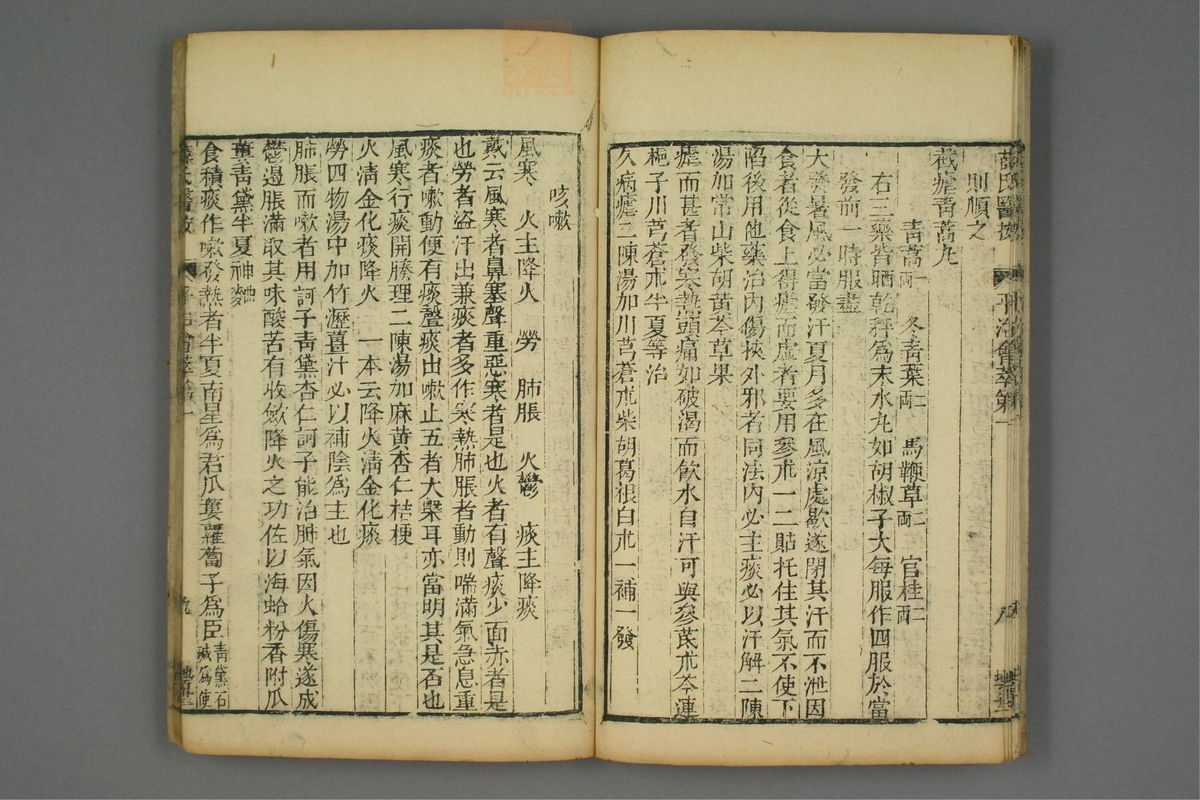 薛氏醫按 平治會萃卷一 八
則順之
截瘧青蒿丸
青蒿一兩 冬青葉二兩 馬鞭草二兩 官桂二兩
右三藥皆晒乾秤爲末水丸如胡椒子大每服作四服於當
發前一時服盡
大法暑風必當發汗夏月多在風涼處歇遂閉其汗而不泄因
食者從食上得瘧而虛者要用參朮一二貼托住其氣不使下
陷後用他藥治內傷挾外邪者同法內必主痰必以汗解二陳
湯加常山柴胡黃芩草果
瘧而甚者發寒熱頭痛如破渴而飲水自汗可與參芪朮芩連
梔子川芎蒼朮半夏等治
久病瘧二陳湯加川芎蒼朮柴胡葛根白朮一補一發
咳嗽
風寒 火主降火 勞 肺脹 火鬱 痰主降痰
戴云風寒者鼻塞聲重惡寒者是也火者有聲痰少面赤者是
也勞者盜汗出兼痰者多作寒熱肺脹者動則喘滿氣急息重
痰者嗽動便有痰聲痰出嗽止五者大槩耳亦當明其是否也
風寒行痰開腠理二陳湯加麻黃杏仁桔梗
火清金化痰降火 一本云降火清金化痰
勞四物湯中加竹瀝薑汁必以補陰爲主也
肺脹而嗽者用訶子青黛杏仁訶子能治肺氣因火傷寒遂成
鬱遏脹滿取其味酸苦有收斂降火之功佐以海蛤粉香附瓜
蔞青黛半夏神麯
食積痰作嗽發熱者半夏南星爲君瓜蔞蘿蔔子爲臣青黛石鹼爲使